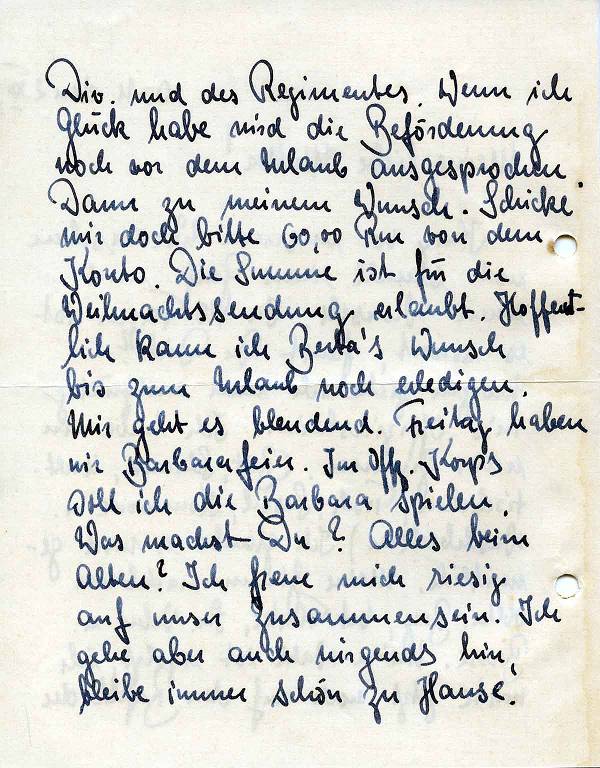 Div. und des Regimentes. Wenn ich
Glück habe wird die Beförderung
noch vor dem Urlaub ausgesprochen.
Dann zu meinem Wunsch. Schicke
mir doch bitte 60,00 Rm von dem
Konto. Die Summe ist für die
Weihnachtssendung erlaubt. Hoffent-
lich kann ich Berta's Wunsch
bis zum Urlaub noch erledigen.
Mir geht es blendend. Freitag haben
wir Barbarafeier. Im Offz. Korps
soll ich die Barbara spielen.
Was machst Du? Alles beim
Alten? Ich freue mich riesig
auf unser Zusammensein. Ich
gehe aber auch nirgends hin,
bleibe immer schön zu Hause.